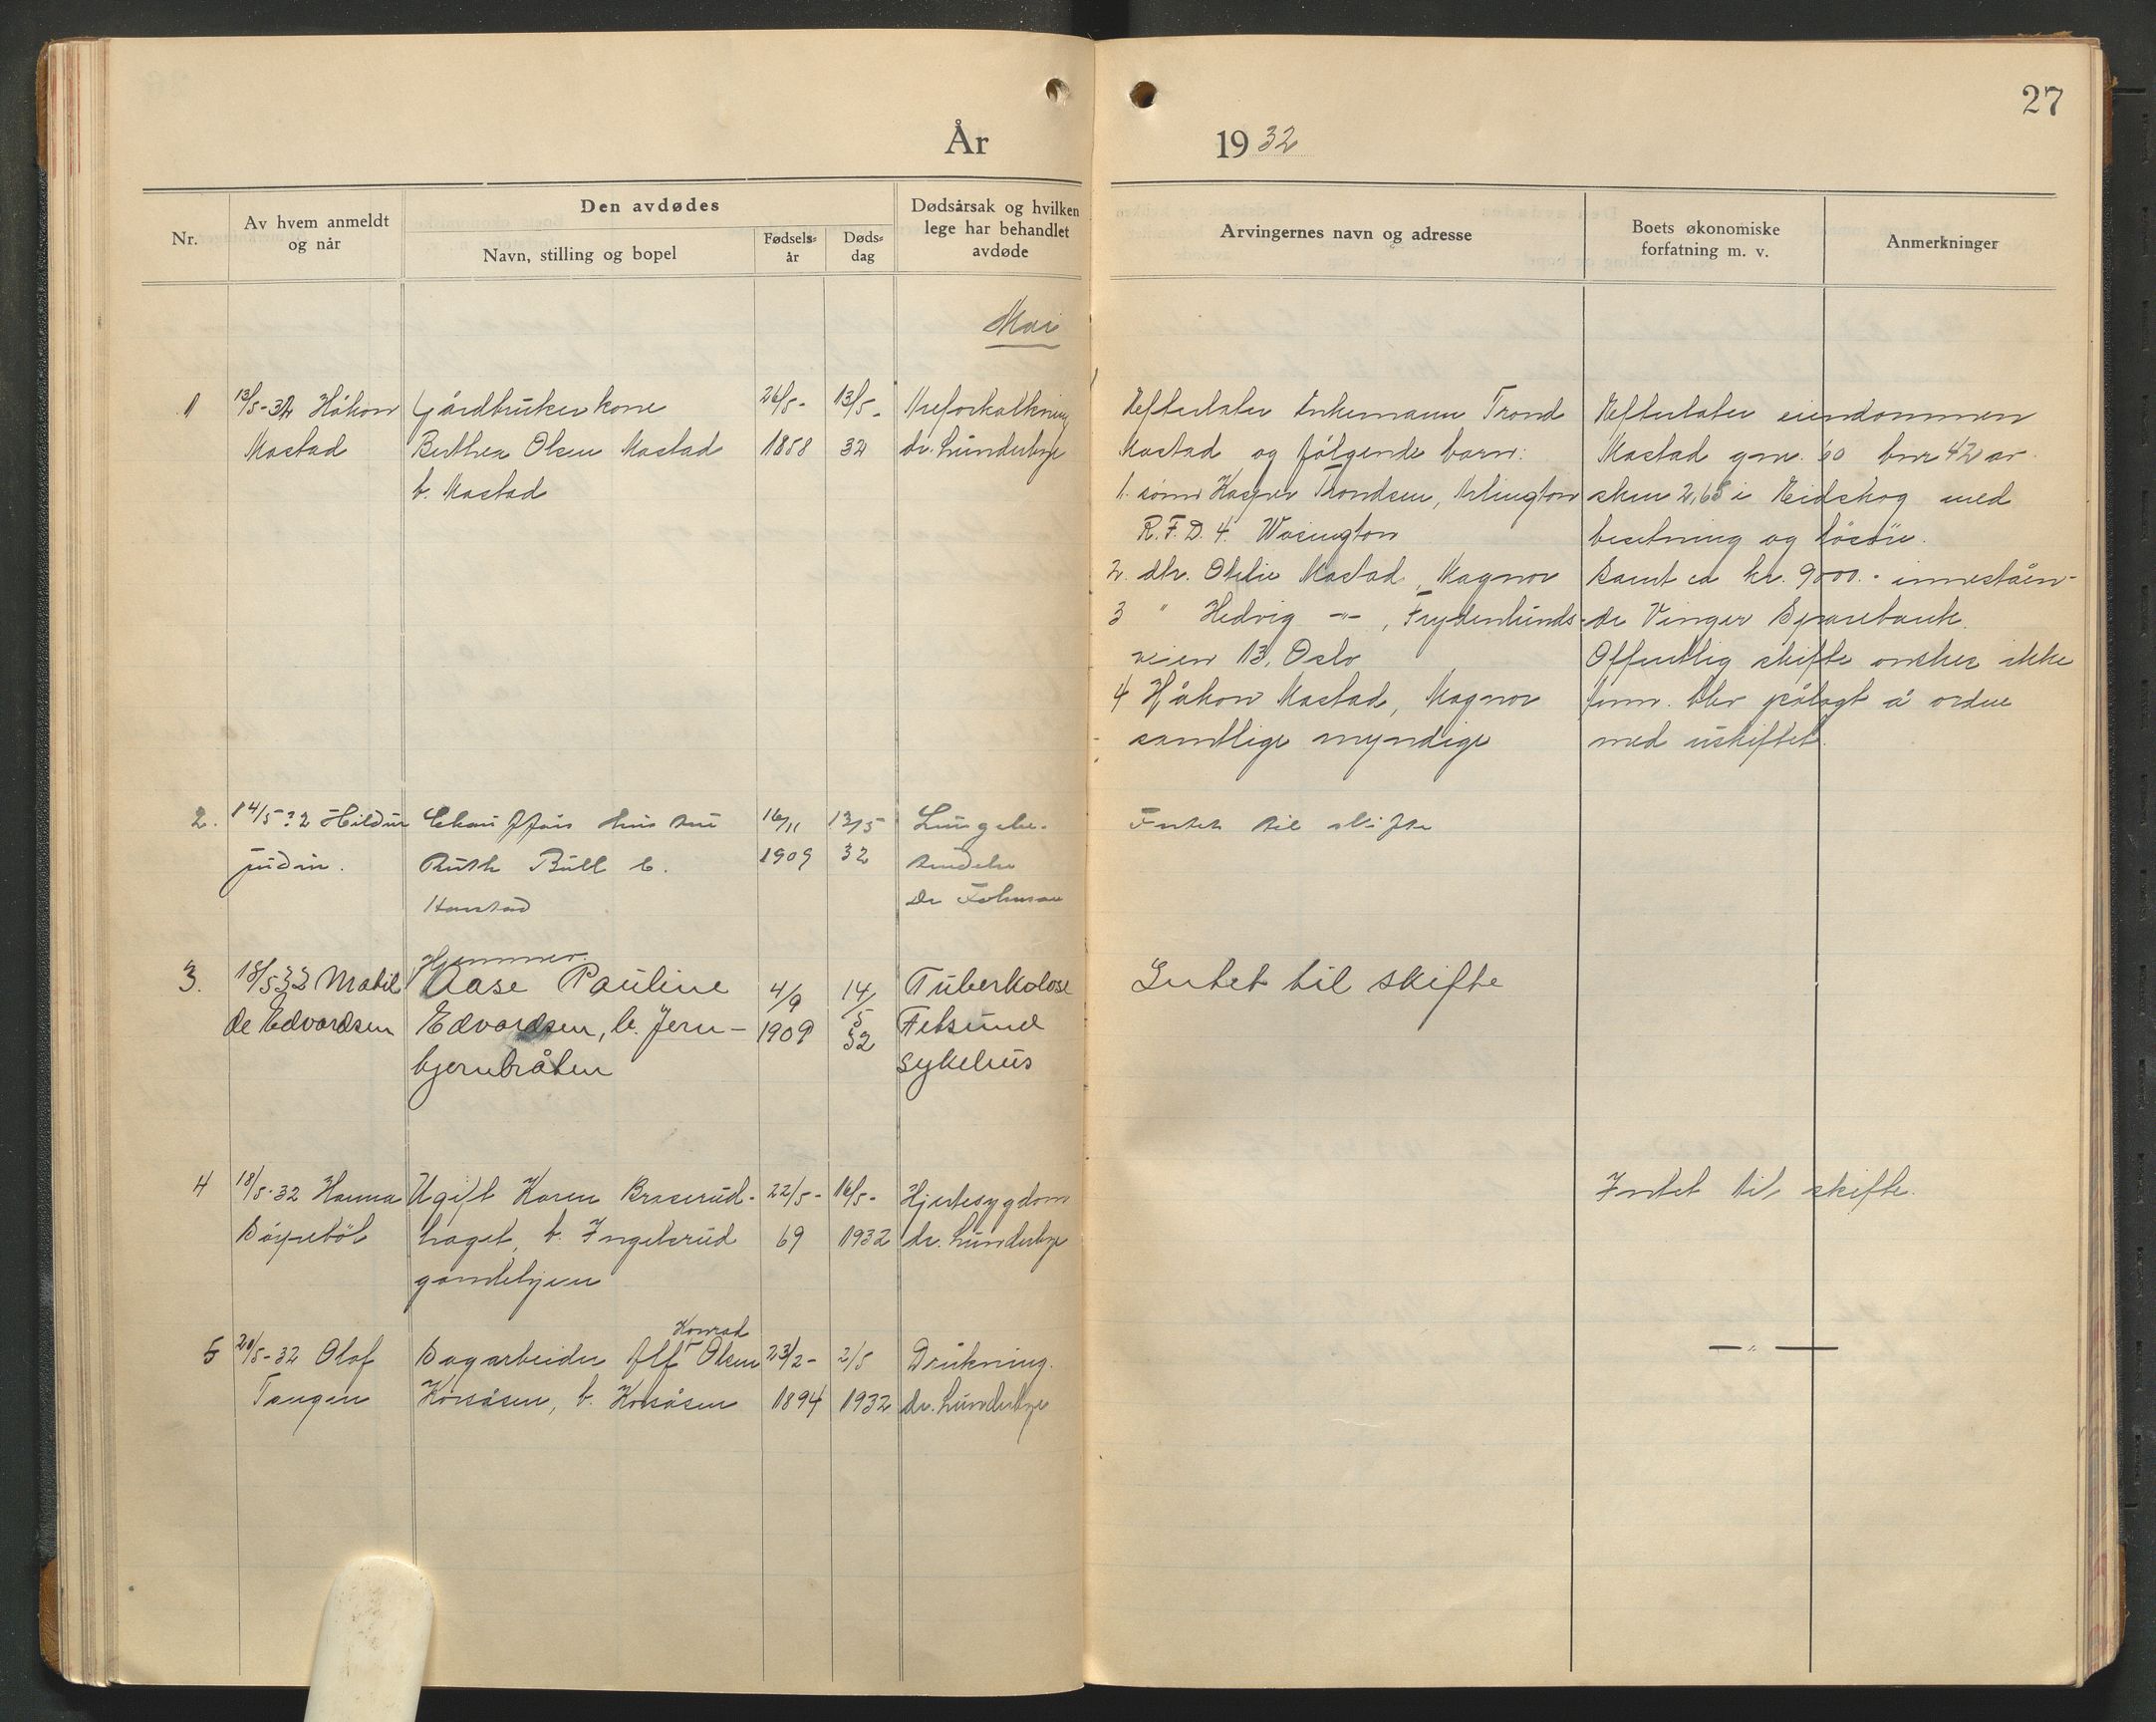 27
År 1932
Nr.
Av hvem anmeldt
og når
Den avdødes
Navn, stilling og bopel
Fødsels-
år
Døds-
dag
Dødsårsak og hvilken
lege har behandlet
avdøde
Arvingernes navn og adresse
Boets økonomiske
forfatning m. v.
Anmerkninger
Mai
1
13/5-32 Håkon
Mastad
Gårdbrukerkone
Berthea Olsen Mastad
b. Mastad
26/5-
1858
13/5-
32
Åreforkalkning
dr. Lunderbye
Efterlater Enkemann Trond
Mastad og følgende barn:
1. sønn Kasper Trondsen, Arlington
R.F.D. 4. Wasington
2. dtr. Otilie Mastad, Magnor
3 " Hedvig -"- , Frydenlunds-
veien 13, Oslo
4 Håkon Mastad, Magnor
samtlige myndige
Efterlater eiendommen
Mastad gnr. 60 bnr 42 av
skm 2,65 i Eidskog med
besetning og løsøre.
Samt ca kr. 9000.- inneståen-
de Vinger Sparebank.
Offentlig skifte ønskes ikke
Anm. blev pålagt å ordne
med uskiftet.
2.
14/5 32 Hildur
Judin.
Chaufførs hustru
Ruth Bull b.
16/11
1909
13/5
32
Lungebe-
tendelse
Dr
Intet til skifte
3.
18/5 32 Matil
de Edvardsen
Hjemmev.
Aase Pauline
Edvardsen, b. Jern-
bjernbråten
4/9
1909
14/5
32
Tuberkolose
Fetsund
sykehus
Intet til skifte
4
18/5-32 Hanna
Ugift Karen Braserud-
haget, b. Ingelsrud
gamlehjem
22/5-
69
16/5-
1932
Hjertesygdom
dr. Lunderbye
Intet til skifte.
5
20/5-32 Olaf
Tangen
Konrad
Sagarbeider Alf Olsen
Korsåsen, b. Korsåsen
23/2-
1894
2/5
1932
Drukning.
dr. Lunderbye
— " —